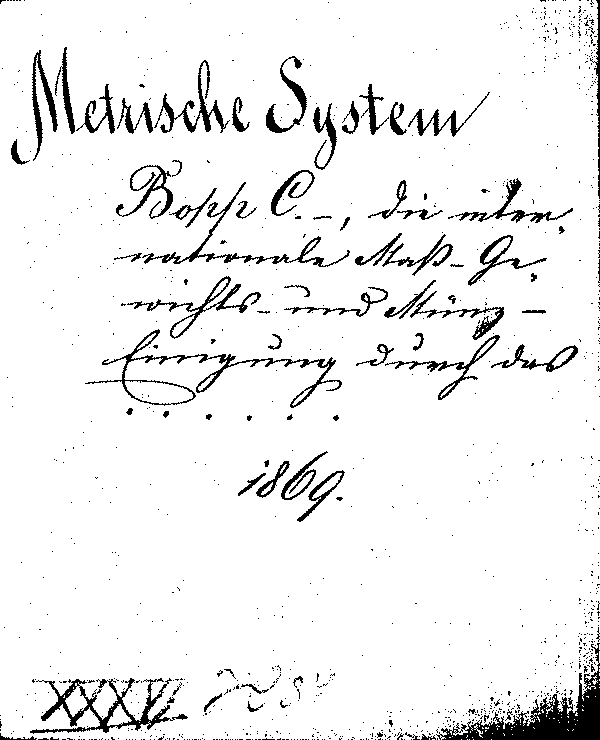 Metrische System
Bopp C. –, die inter-
nationale Maß- Ge-
wichts- und Münz-
Einigung durch das
. . . . . .
1869.
XXXV